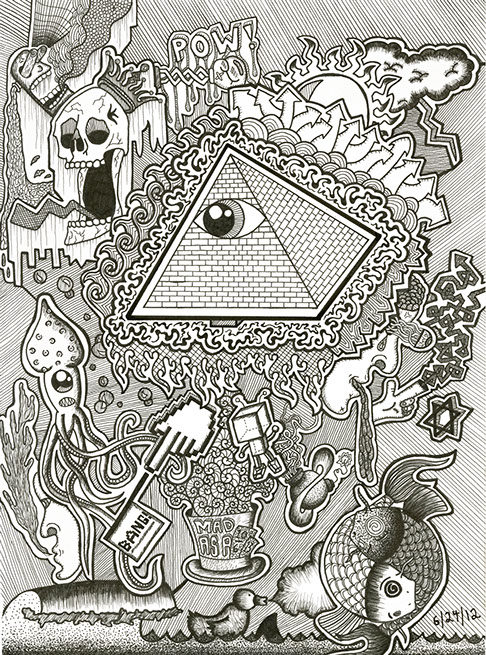 POW!
BANG!
MAD
AS A
6/24/12